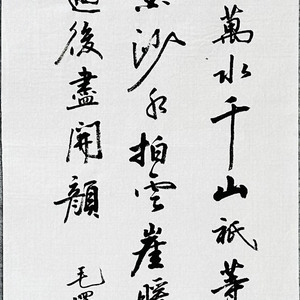 萬水千山祇等
沙水拍雲崖暖
過後盡開顏
毛